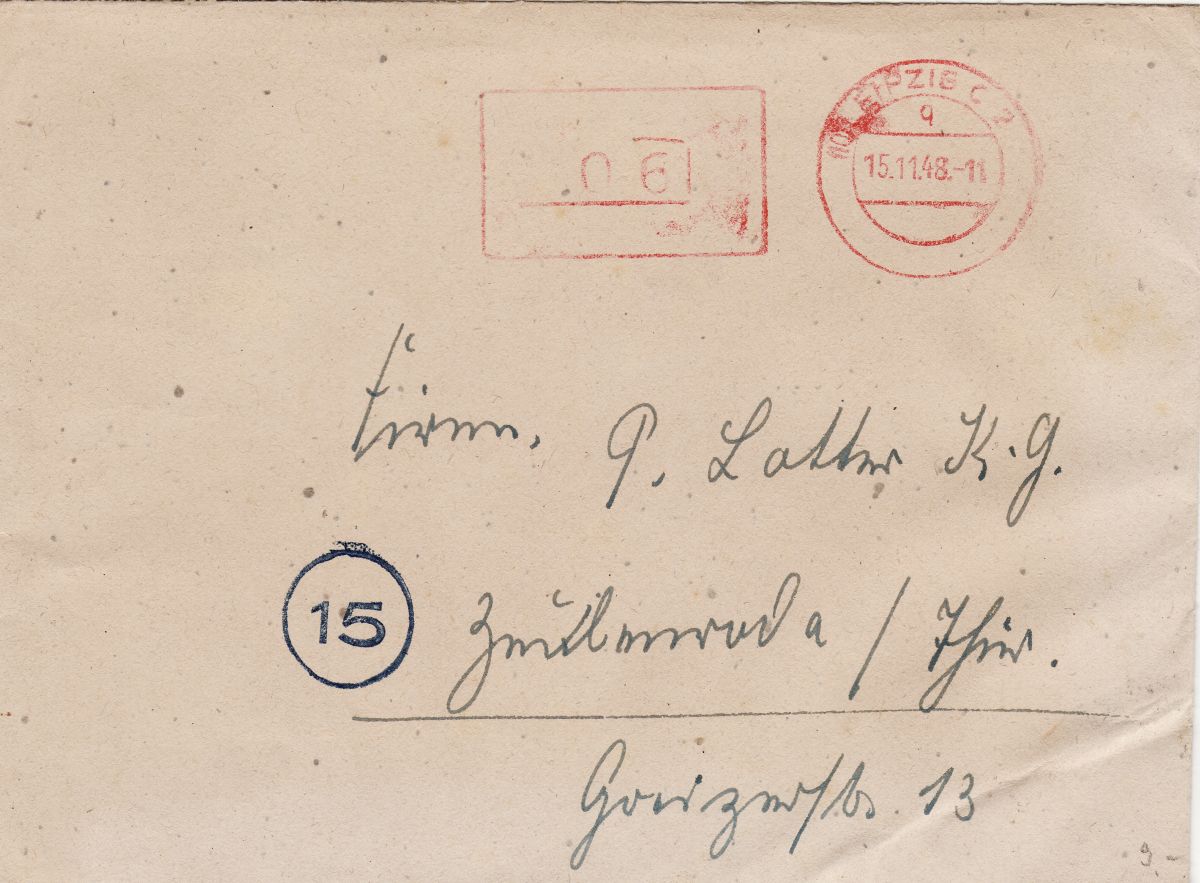 (10) LEIPZIG C 2
q
15.11.48.-11
Firma.
P. Lotter K.G.
15
Zeulenroda / Thür.
Greizerstr. 13
9 -